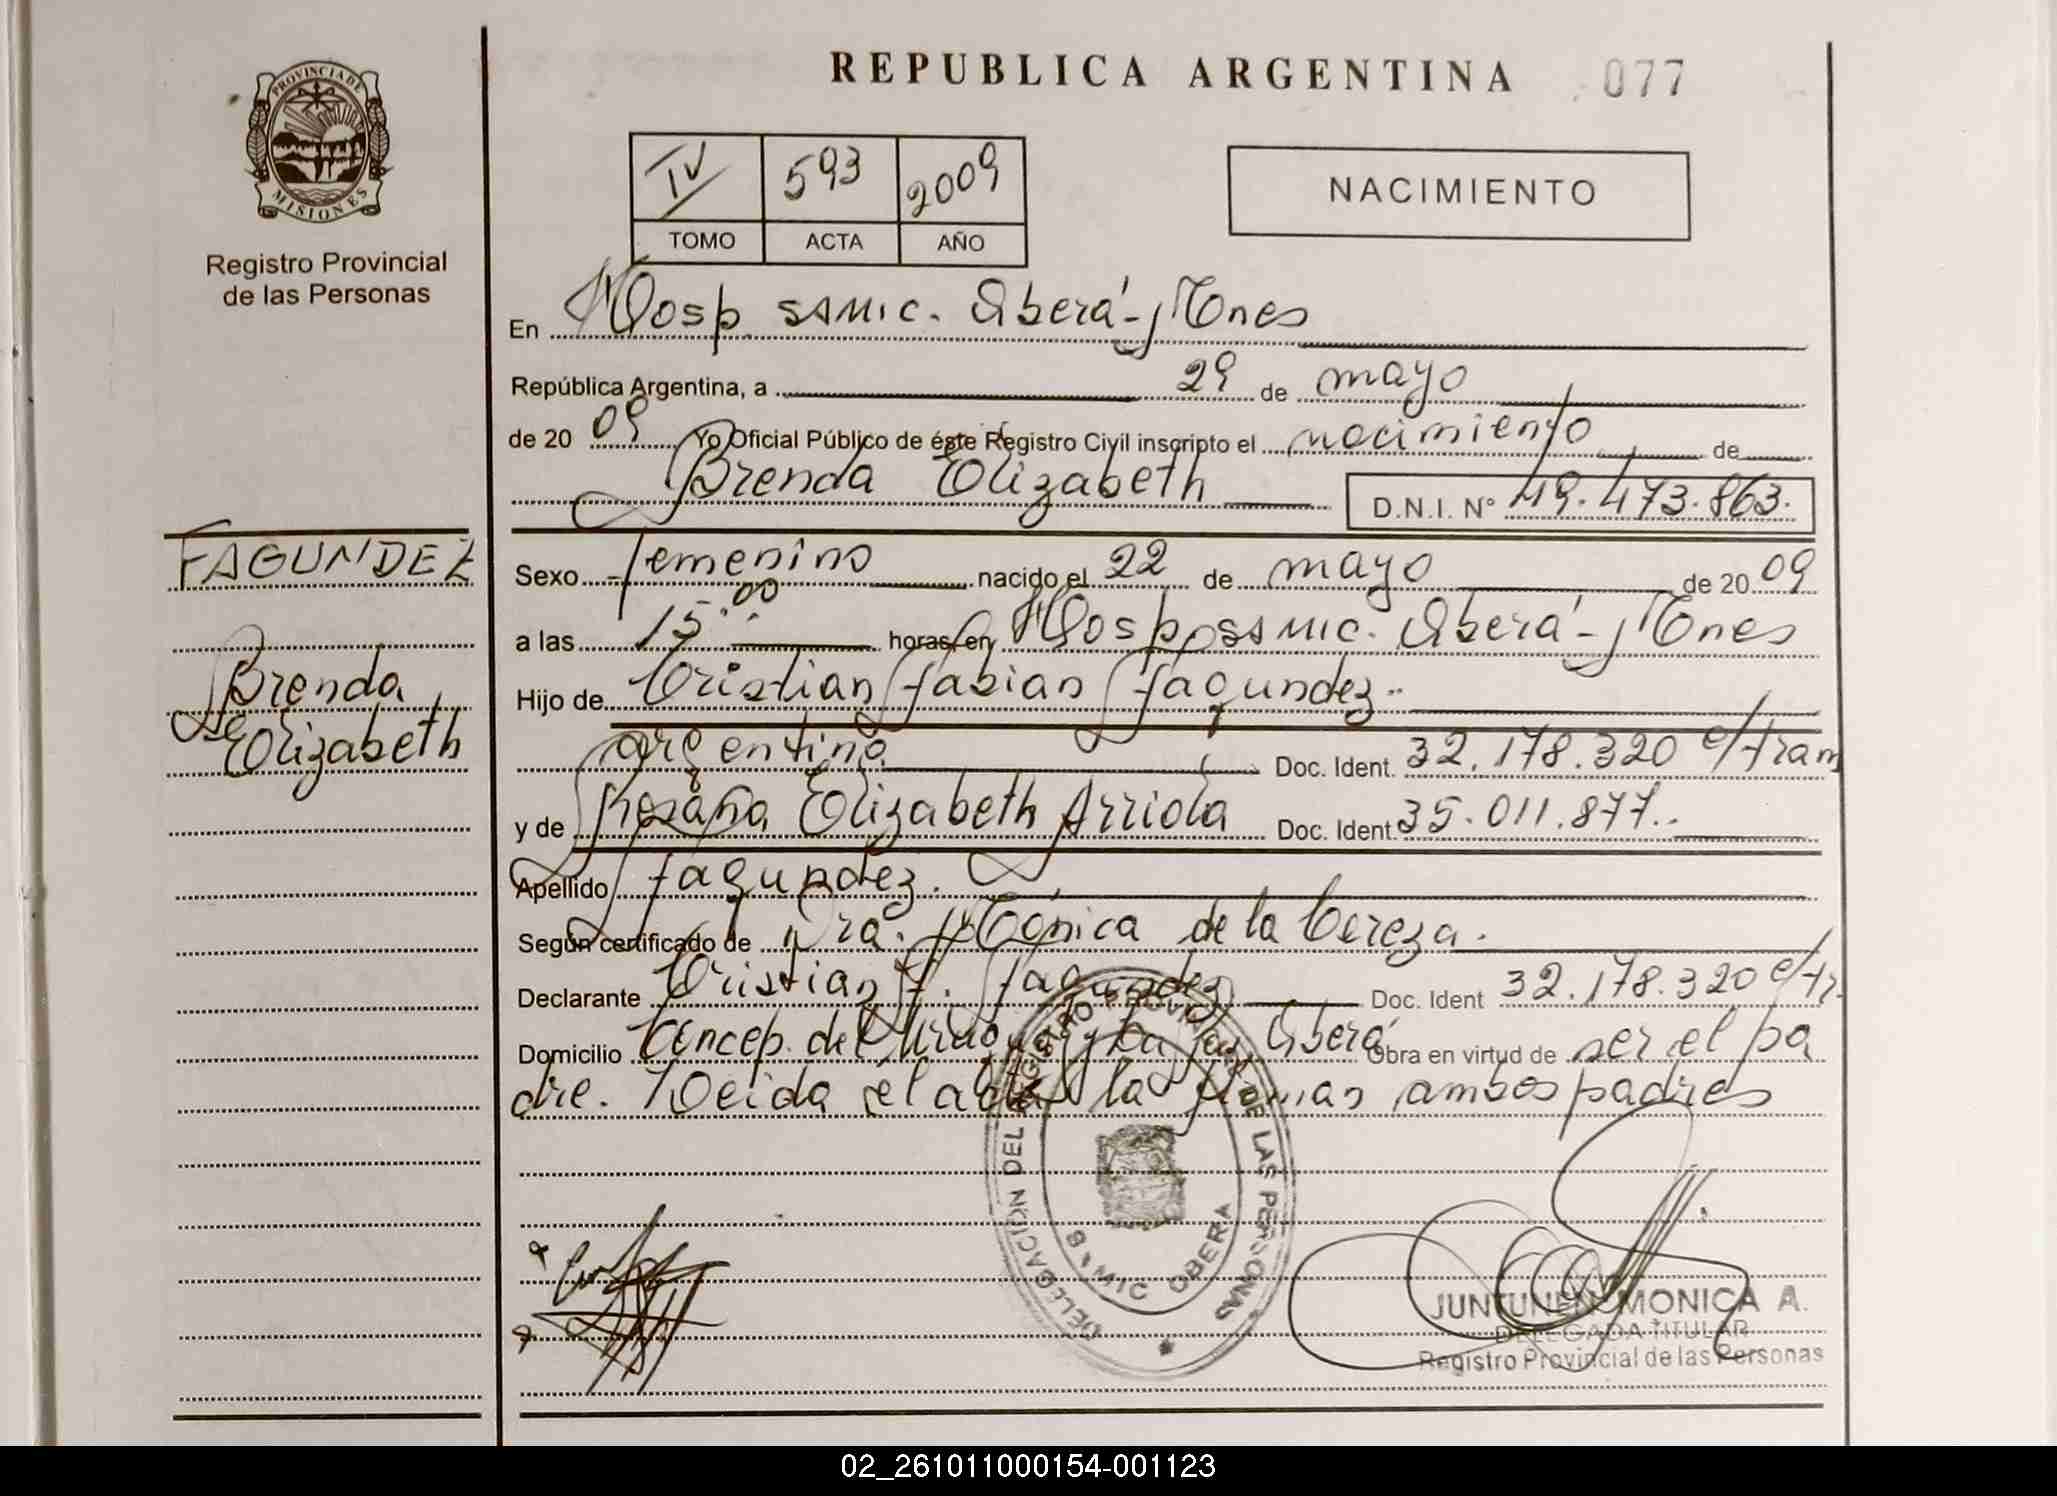 REPUBLICA ARGENTINA 077
PROVINCIA DE
MISIONES
Registro Provincial
de las Personas
IV 593 2009
TOMO ACTA AÑO
NACIMIENTO
En Hosp. SAMIC. Oberá - Mnes
República Argentina, a 29 de mayo
de 2009 Yo Oficial Público de éste Registro Civil inscripto el nacimiento de
Brenda Elizabeth D.N.I. N° 49.473.863.
FAGUNDEZ
Brenda
Elizabeth
Sexo femenino nacido el 22 de mayo de 2009
a las 15:00 horas en Hosp. SAMIC. Oberá - Mnes
Hijo de Cristian Fabian Fagundez..
argentino Doc. Ident. 32.178.320 e/tram
y de Rosana Elizabeth Arriola Doc. Ident 35.011.877..
Apellido Fagundez.
Según certificado de Dra. Mónica de la Cereza.
Declarante Cristian F. Fagundez Doc. Ident 32.178.320 e/tr.
Domicilio Concep. del Oberá Obra en virtud de ser el pa
dre. Leida el acta la firman ambos padres
DELEGACION DEL REGISTRO PROVINCIAL DE LAS PERSONAS
OBERA
JUNTUNEN MONICA A.
DELEGADA TITULAR
Registro Provincial de las Personas
02_261011000154-001123